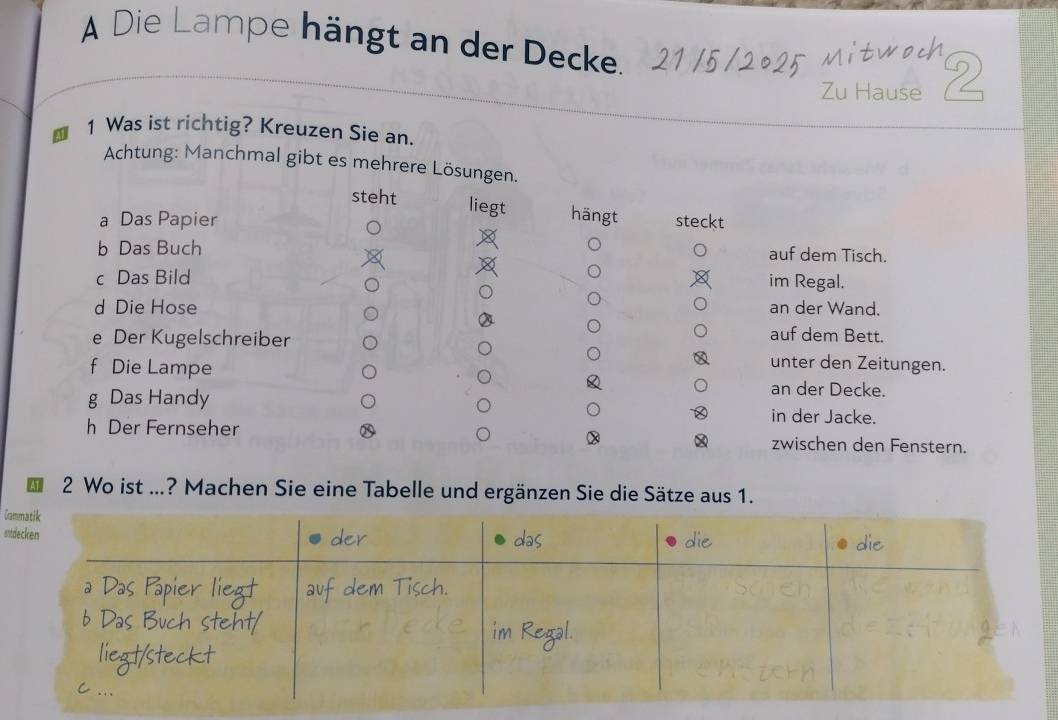 A Die Lampe hängt an der Decke. 21/5/2025 Mitwoch
Zu Hause 2
A1 1 Was ist richtig? Kreuzen Sie an.
Achtung: Manchmal gibt es mehrere Lösungen.
steht liegt hängt steckt
a Das Papier auf dem Tisch.
b Das Buch im Regal.
c Das Bild an der Wand.
d Die Hose auf dem Bett.
e Der Kugelschreiber unter den Zeitungen.
f Die Lampe an der Decke.
g Das Handy in der Jacke.
h Der Fernseher zwischen den Fenstern.
A1 2 Wo ist ...? Machen Sie eine Tabelle und ergänzen Sie die Sätze aus 1.
Grammatik
entdecken
der das die die
a Das Papier liegt auf dem Tisch.
b Das Buch steht/ im Regal.
liegt/steckt
c ...